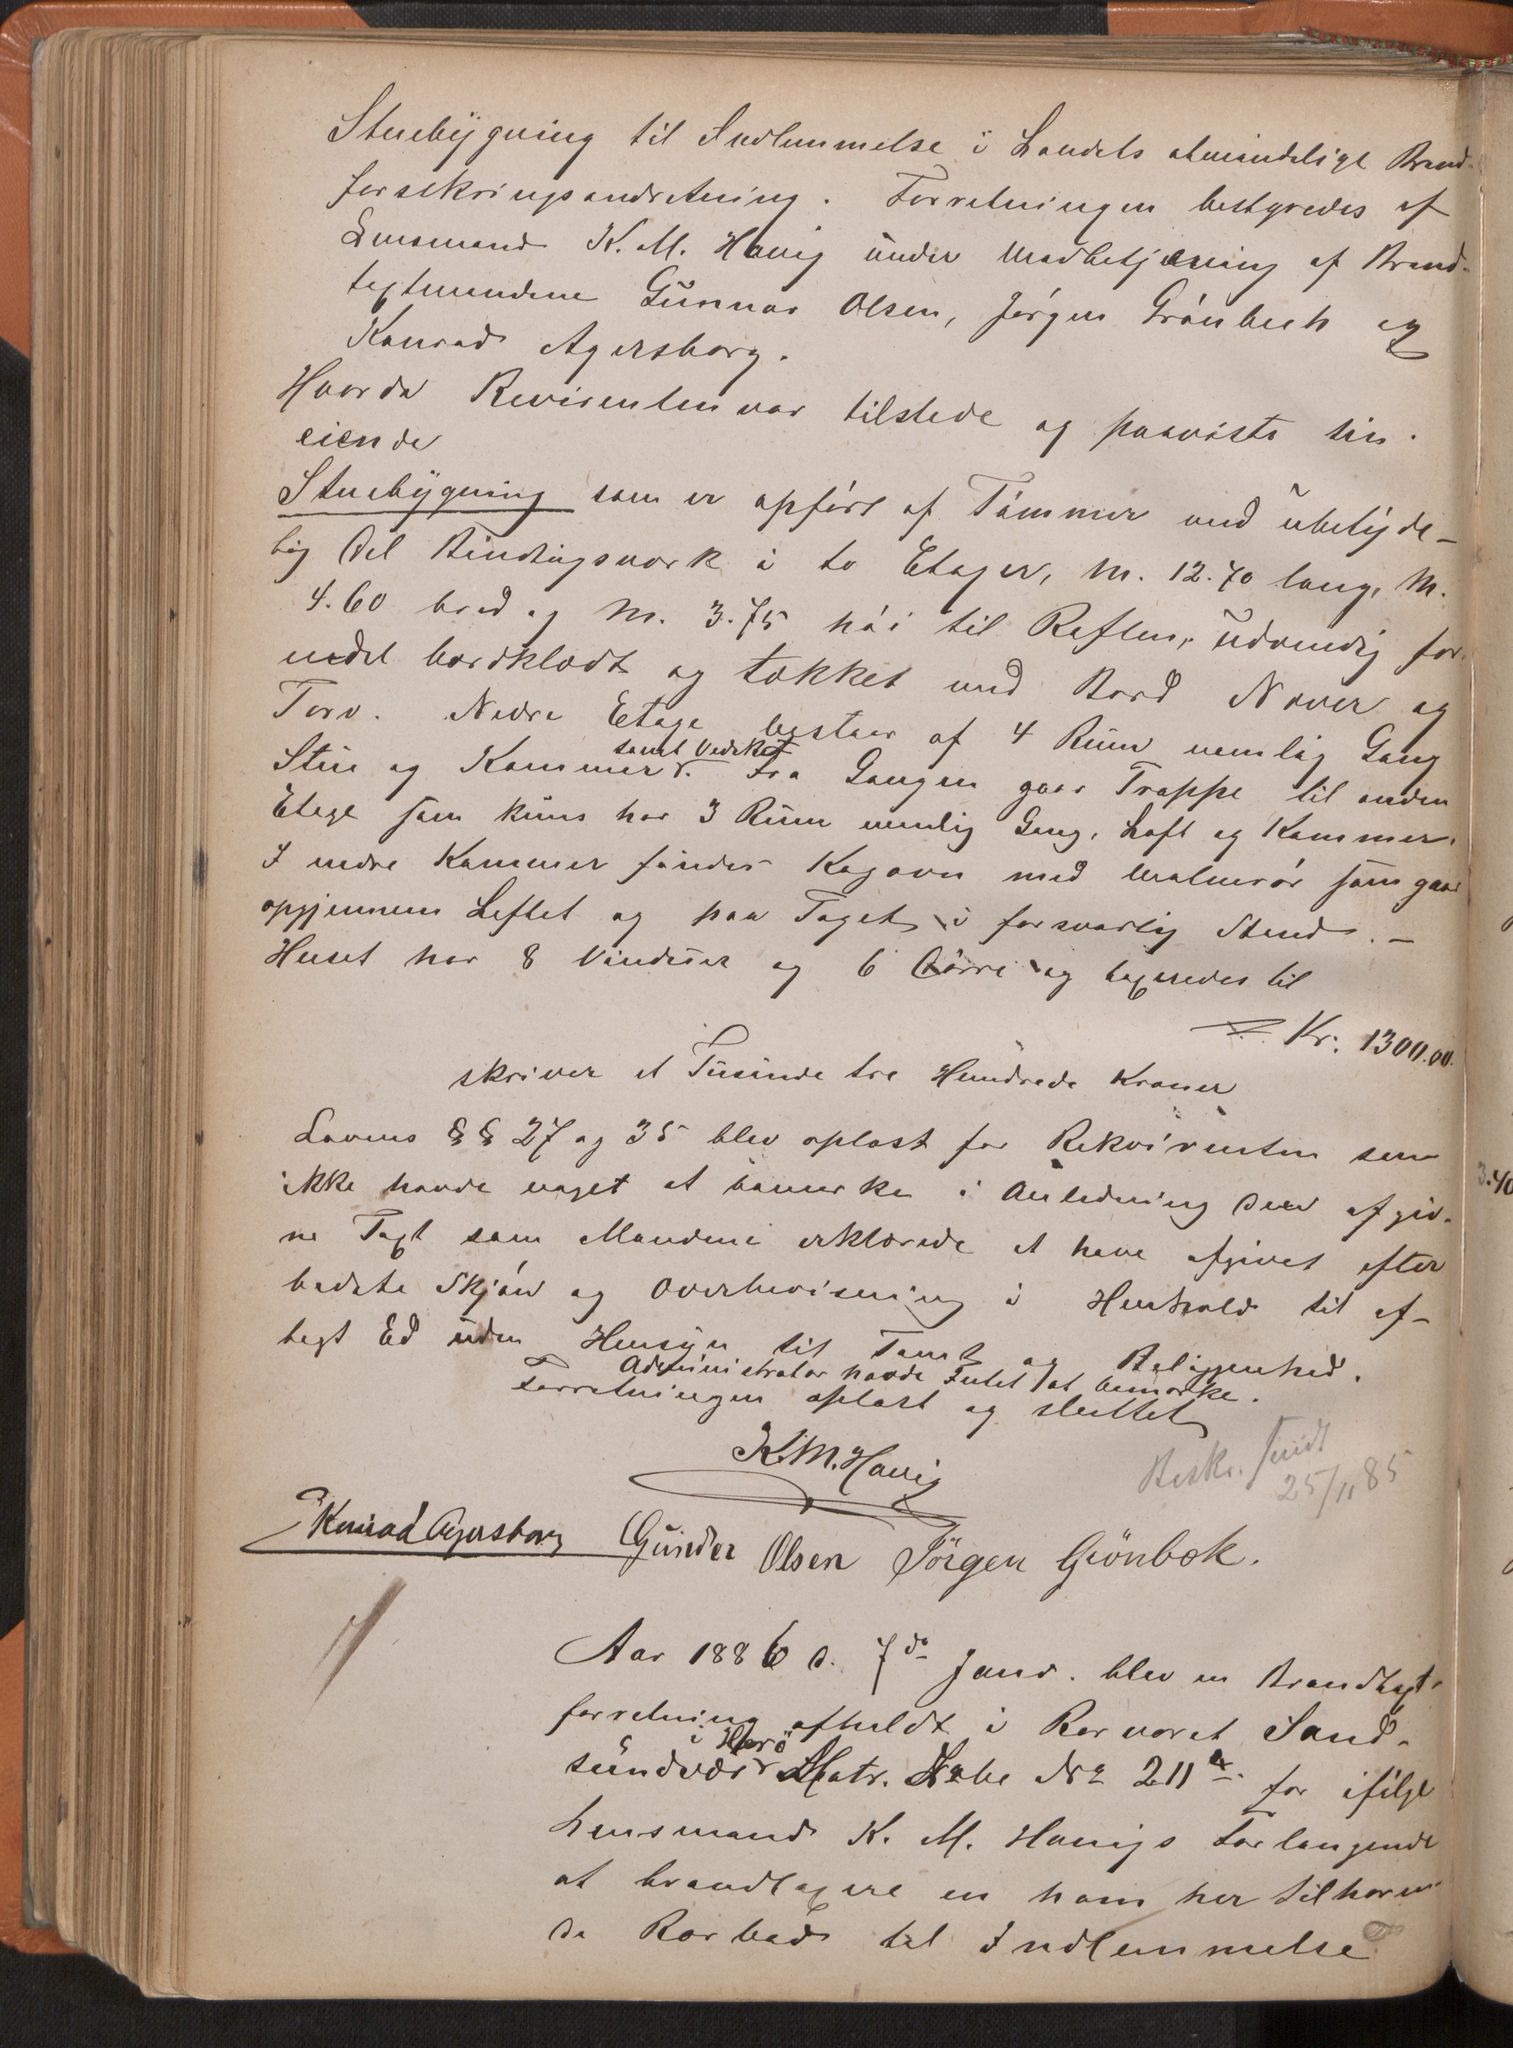 Stuebygning til Indlemmelse i Landets almindelige Brand-
forsikringsindretning. Forretningen bestyredes af
Lensmand K. M. Havig under Medbetjening af Brand-
taxtmændene Gunnar Olsen, Jørgen Grønbech og
Konrad Agersborg.
Hvorda Revirenten var tilstede og paaviste sin
eiende
Stuebygning som er opført af Tømmer med ubetyde-
lig Del Bindingsværk i to Etager, M. 12.70 lang, M.
4.60 bred og M. 3.75 høi til Raften, udvendig for-
nedet bordklædt og tækket med Bord Næver og
Torv. Nedre Etage bestaar af 4 Rum nemlig Gang
Stue og Kammer samt Vedskot. Fra Gangen gaar Trappe til anden
Etage som kuns har 3 Rum nemlig Gang, Loft og Kammer.
I nedre Kammer findes Kagovn med Malmrør som gaar
opgjennem Loftet og paa Taget i forsvarlig Stand. -
Huset har 8 Vinduer og 6 Dørre og taxeredes til
Kr. 1300.00.
skriver et Tusinde tre Hundrede Kroner
Lovens §§ 27 og 35 blev oplæst for Rekvirenten som
ikke havde noget at bemærke i Anledning den afgiv-
ne Taxt som Mændene erklærede at have afgivet efter
bedste Skjøn og Overbevisning i Henhold til af-
lagt Ed uden Hensyn til Tomt og Beliggenhed.
Administrator havde Intet at bemærke.
Forretningen oplæst og sluttet
K.M. Havig
Beskr. sendt
25/11 85
Konrad Agersborg Gunder Olsen Jørgen Grönbæk.
Aar 1886 d. 7de Janr. blev en Brandtaxt-
forretning afholdt i Rorværet Sand-
sundvær i Herö Matr. No 211a for ifølge
Lensmand K. M. Havigs Forlangende
at brandtaxere en ham her tilhøren-
de Rorbod til Indlemmelse